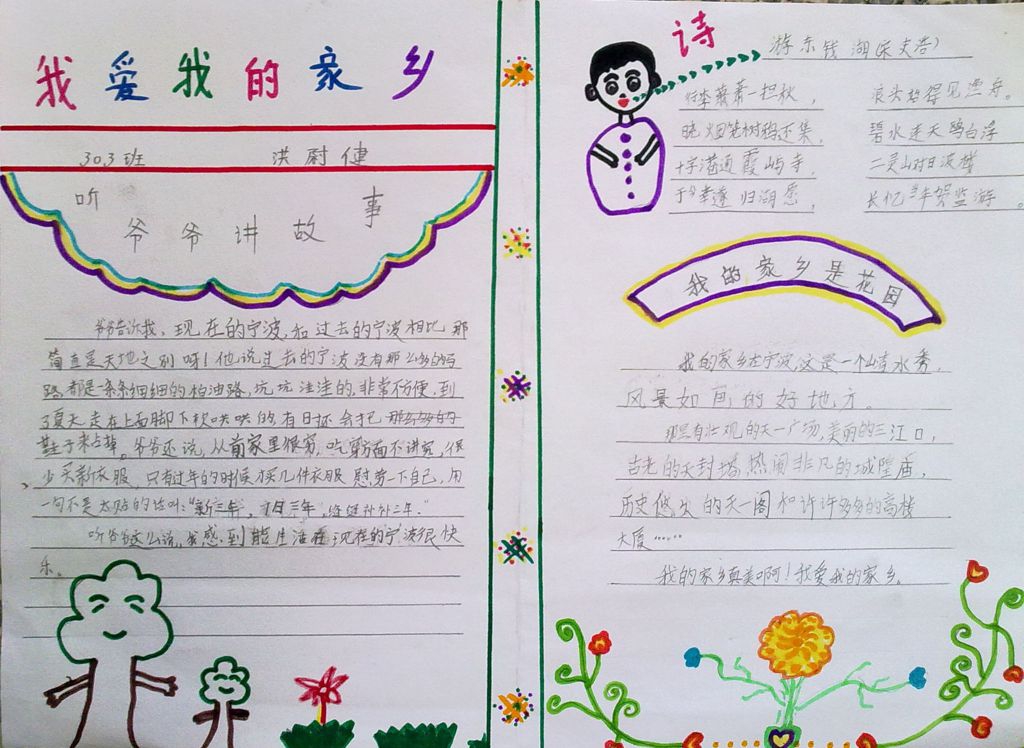 我爱我的家乡
303班 洪尉健
听爷爷讲故事
爷爷告诉我，现在的宁波，和过去的宁波相比，那
简直是天地之别呀！他说过去的宁波没有那么多的马
路，都是一条条细细的柏油路，坑坑洼洼的，非常不方便，到
了夏天走在上面脚下软哄哄的，有日还会把
鞋子来占掉。爷爷还说，从前家里很穷，吃穿方面不讲究，很
少买新衣服，只有过年的时候才买几件衣服慰劳一下自己，用
一句不是太贴的话叫："新三年，旧三年，缝缝补补三年."
听爷爷这么说，我感到能生活在现在的宁波很快
乐。
诗
游东钱湖（宋史浩）
行李萧萧一担秋，浪头始得见渔舟。
晓烟笼树鸦还集，碧水连天鸥自浮
十字港通霞屿寺，二灵山对月波楼
于今幸遂归湖愿，长忆当年贺监游。
我的家乡是花园
我的家乡在宁波，这是一个山清水秀，
风景如画的好地方。
那里有壮观的天一广场，美丽的三江口，
古老的天封塔，热闹非凡的城隍庙，
历史悠久的天一阁和许许多多的高楼
大厦……
我的家乡真美啊！我爱我的家乡。